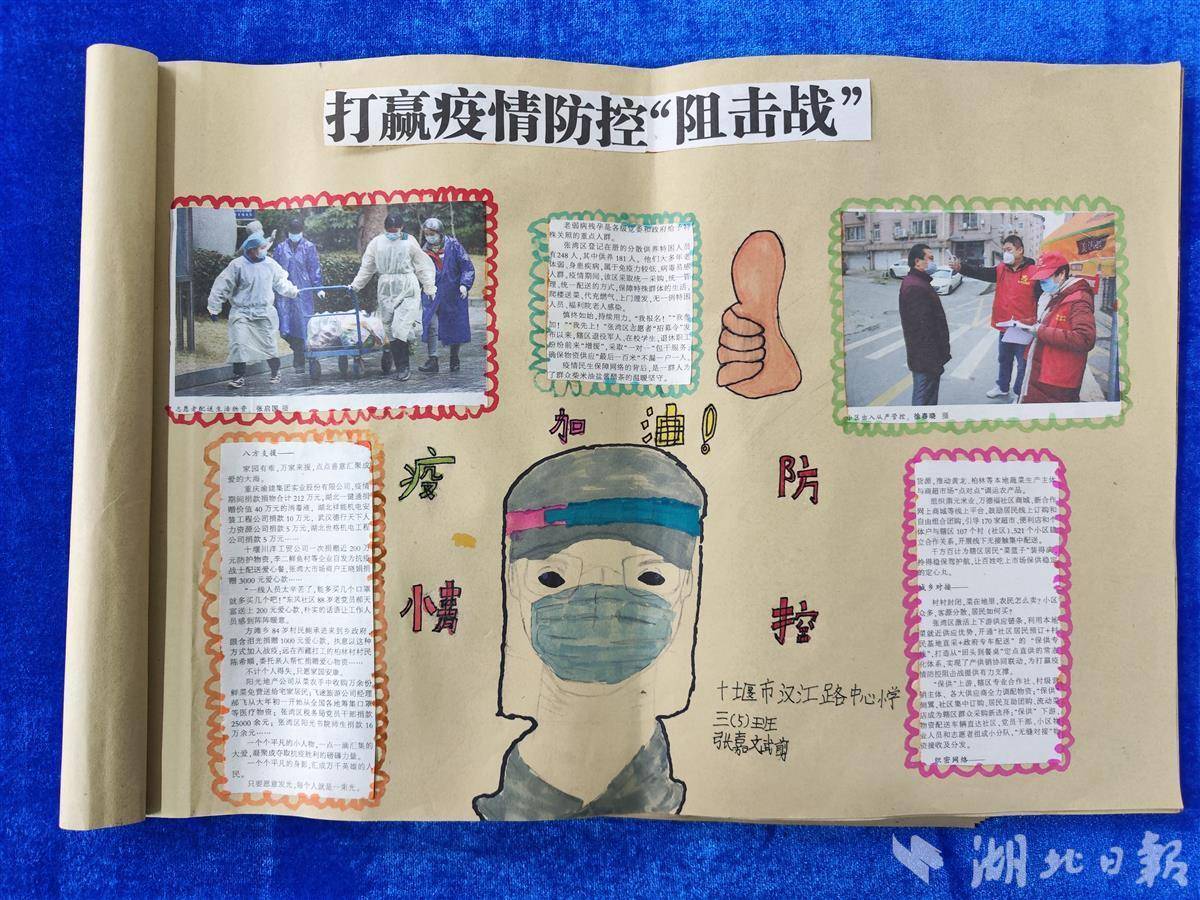 打赢疫情防控“阻击战”
志愿者配送生活物资。张启国 摄
老弱病残孕是各级党委和政府给予特
殊关照的重点人群。
张湾区登记在册的分散供养特困人员
有248人,其中供养181人。他们大多年老
体弱、身患疾病,属于免疫力较低、病毒易感
人群。疫情期间,该区采取统一采购、统一管
理、统一配送的方式,保障特殊群体的生活,
爬楼送菜、代充燃气、上门理发,无一例特困
人员、福利院老人感染。
慎终如始,持续用力。“我报名!”“我参
加!”“我先上!”张湾区志愿者“招募令”发
布以来,辖区退役军人、在校学生、退休职工
纷纷前来“增援”,采取“一对一”包干服务,
确保物资供应“最后一百米”不漏一户一人。
疫情民生保障网络的背后,是一群人为
了群众柴米油盐酱醋茶的温暖坚守。
小区出入从严管控。徐春晓 摄
加油!
疫
情
防
控
八方支援——
家园有难,万家来援,点点善意汇聚成
爱的大海。
重庆渝建集团实业股份有限公司,疫情
期间捐款捐物合计212万元,湖北一键通捐
赠价值40万元的消毒液、湖北祥能机电安
装工程公司捐款10万元、武汉德行天下人
力资源公司捐款5万元、湖北世格机电工程
公司捐款5万元……
十堰川洋工贸公司一次捐赠近200万
元防护物资,李二鲜鱼村等企业自发为抗疫
战士配送爱心餐,张湾大市场商户王晓娟捐
赠3000元爱心款……
“一线人员太辛苦了,能多买几个口罩
就多买几个吧!”东风社区88岁老党员郝天
富送上200元爱心款,朴实的话语让工作人
员感到阵阵暖意。
方滩乡84岁村民鲍承进来到乡政府,
眼含泪光捐赠1000元爱心款,执意以这种
方式加入战疫;远在西藏打工的柏林村村民
陈希顺,委托亲人帮忙捐赠爱心物资……
不计个人得失,只愿家国安康。
阳光地产公司从菜农手中收购万余份
鲜菜免费送给宅家居民;飞速旅游公司经理
郝飞从大年初一开始从全国各地筹集口罩
等医疗物资;张湾区税务局党员干部捐款
25000余元;张湾区阳光书院师生捐款16
万余元……
一个个平凡的小人物,一点一滴汇集的
大爱,凝聚成夺取抗疫胜利的磅礴力量。
一个个平凡的身影,汇成万千英雄的人
民。
只要愿意发光,每个人就是一束光。
货源,推动黄龙、柏林等本地蔬菜生产主体
与商超市场“点对点”调运农产品。
组织鼎元米业、万德福社区商城、新合作
网上商城等线上平台,鼓励居民线上订购和
自由组合团购,引导170家超市、便利店和个
体户与辖区107个村(社区)、521个小区建
立合作关系,开展线下无接触集中配送。
千方百计为辖区居民“菜篮子”装得满、
拎得稳保驾护航,让百姓吃上市场保供稳定
的定心丸。
城乡对接——
村村封闭,菜在地里,农民怎么卖?小区
众多,客源分散,居民如何买?
张湾区激活上下游供应链条,利用本地
菜就近供应优势,开通“社区居民预订+村
民基地直采+政府专车配送”的“保供专
线”,打造从“田头到餐桌”定点直供的常态
化体系,实现了产供销协同联动,为打赢疫
情防控阻击战提供有力支撑。
“保供”上游,辖区专业合作社、村级营
销主体、各大供应商全力调配物资;“保供”
侧翼,社区集中订购、居民互助团购、流动菜
店成为辖区群众采购新选择;“保供”下游,
物资配送车辆直达社区,党员干部、小区物
业人员和志愿者组成小分队,“无缝对接”物
资接收及分发。
织密网络——
十堰市汉江路中心小学
三(5)班
张嘉文
湖北日报